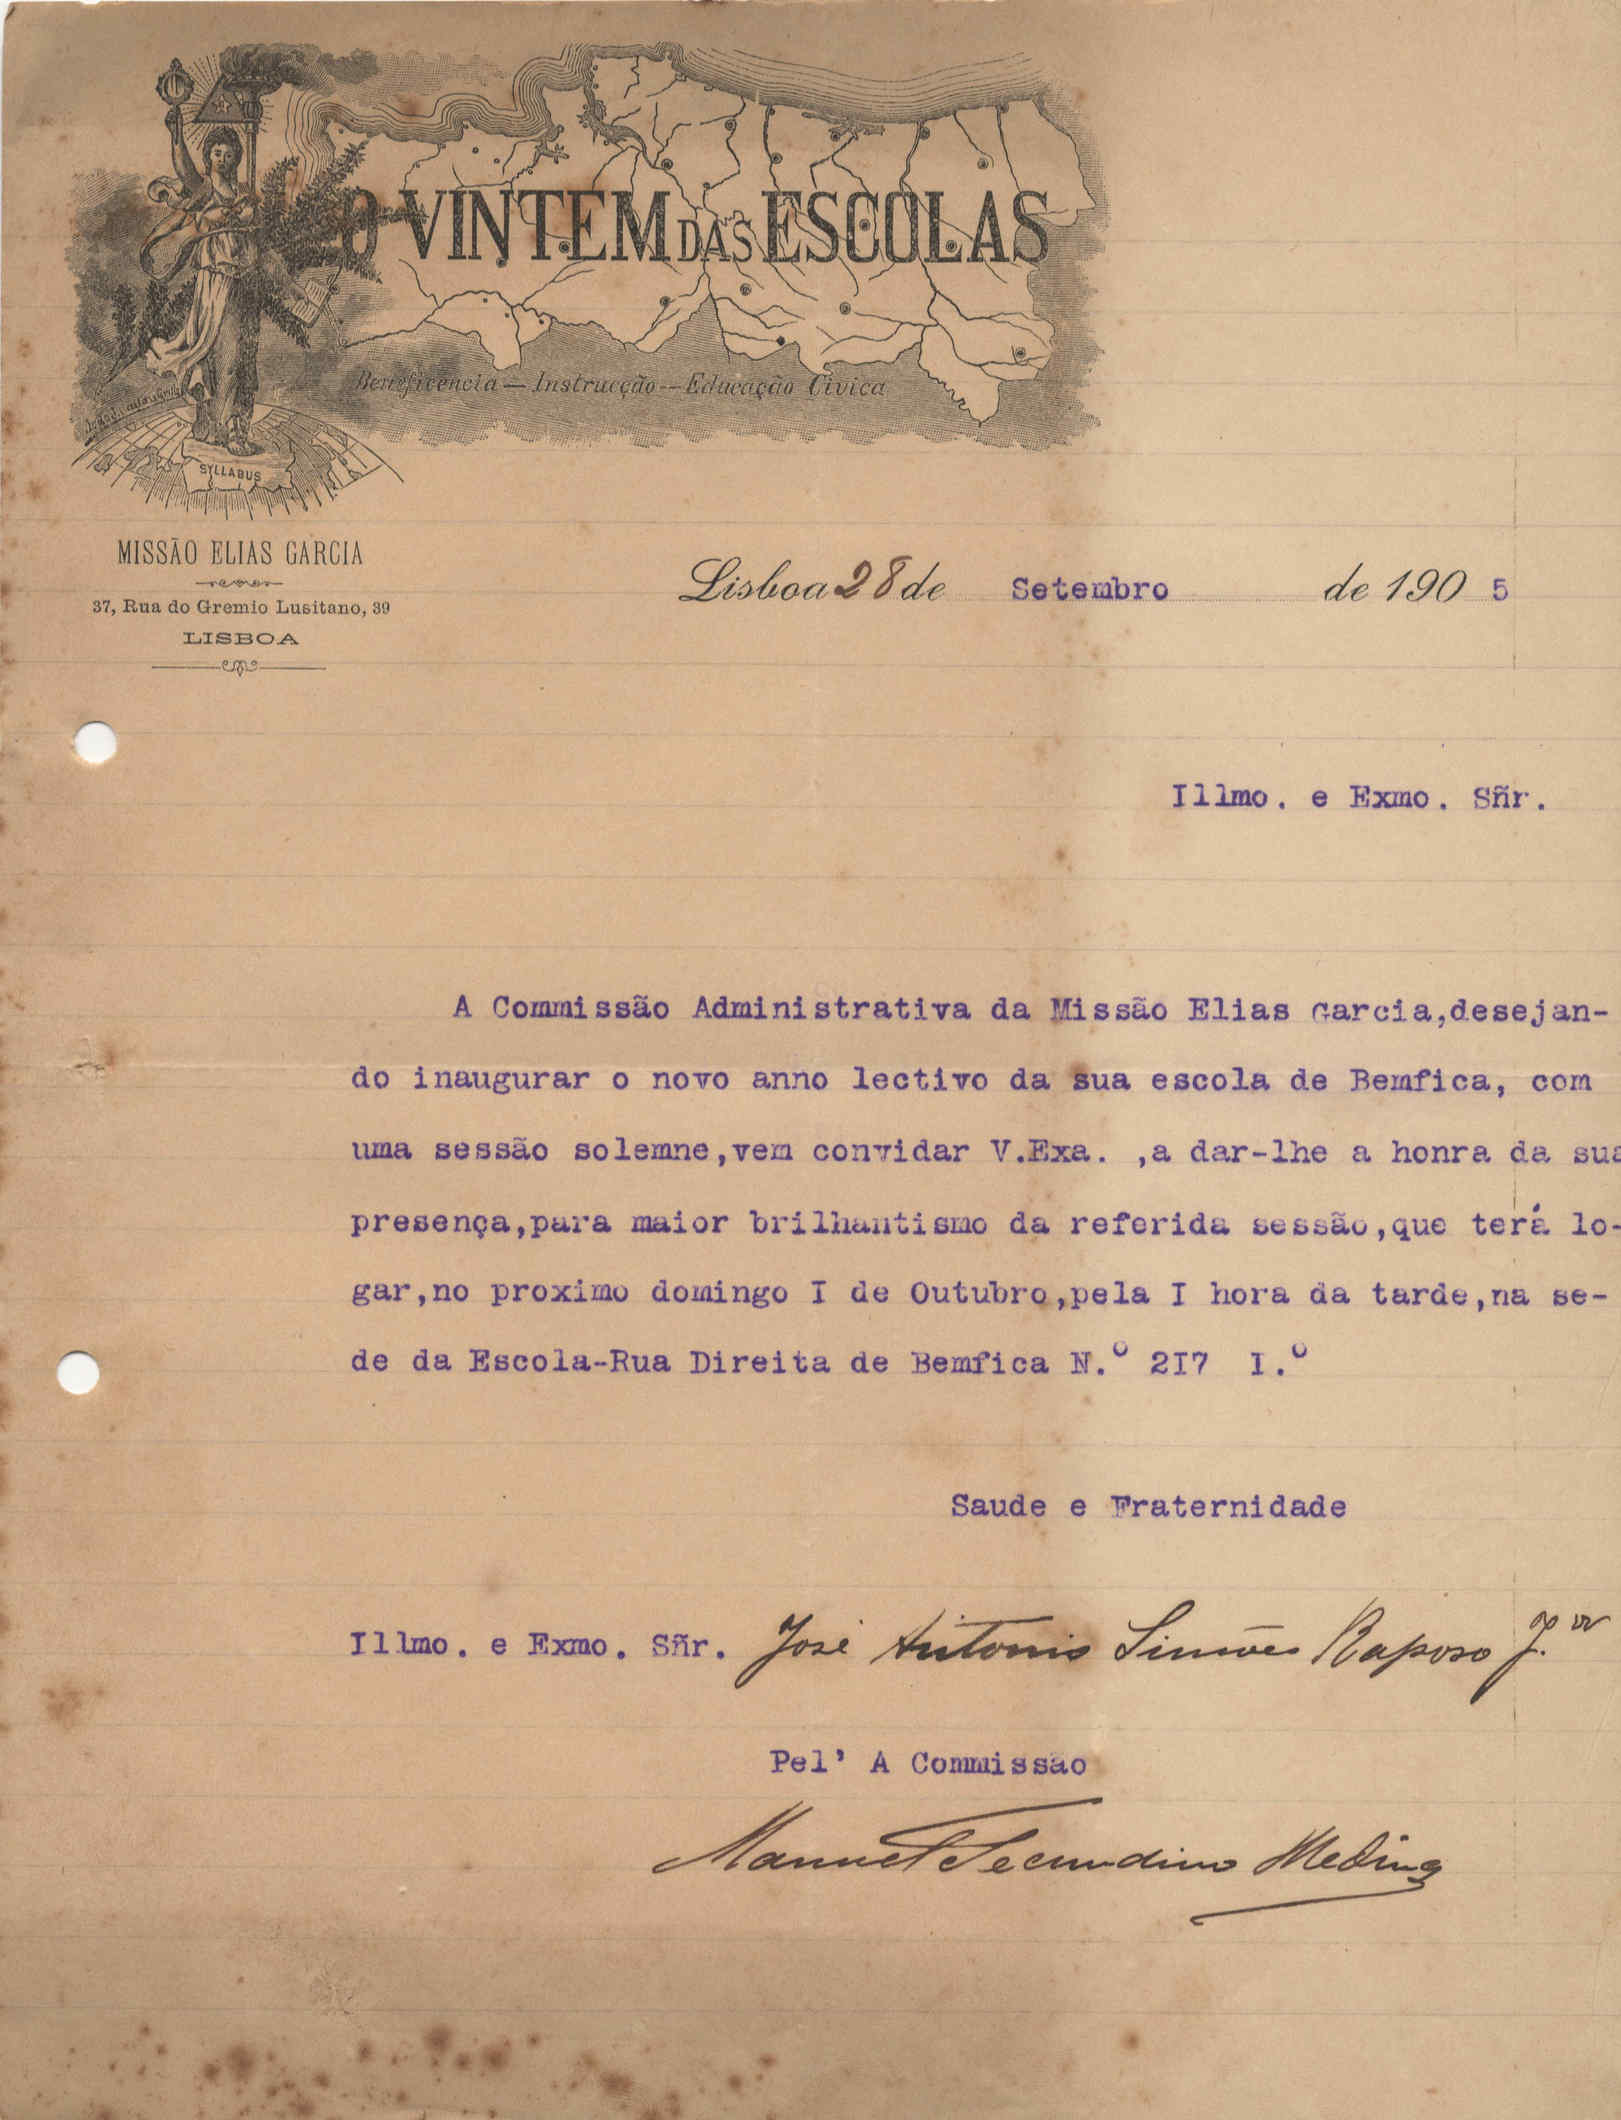 O VINTEM DAS ESCOLAS
Beneficencia — Instrucção — Educação Civica
SYLLABUS
MISSÃO ELIAS GARCIA
37, Rua do Gremio Lusitano, 39
LISBOA
Lisboa 28 de Setembro de 1905
Illmo. e Exmo. Sñr.
A Commissão Administrativa da Missão Elias Garcia,desejan-
do inaugurar o novo anno lectivo da sua escola de Bemfica, com
uma sessão solemne,vem convidar V.Exa. ,a dar-lhe a honra da sua
presença,para maior brilhantismo da referida sessão,que terá lo-
gar,no proximo domingo I de Outubro,pela I hora da tarde,na se-
de da Escola-Rua Direita de Bemfica N.º 2I7 I.º
Saude e Fraternidade
Illmo. e Exmo. Sñr. José Antonio Simões Raposo J.or
Pel' A Commissão
Manuel Secundino Medina